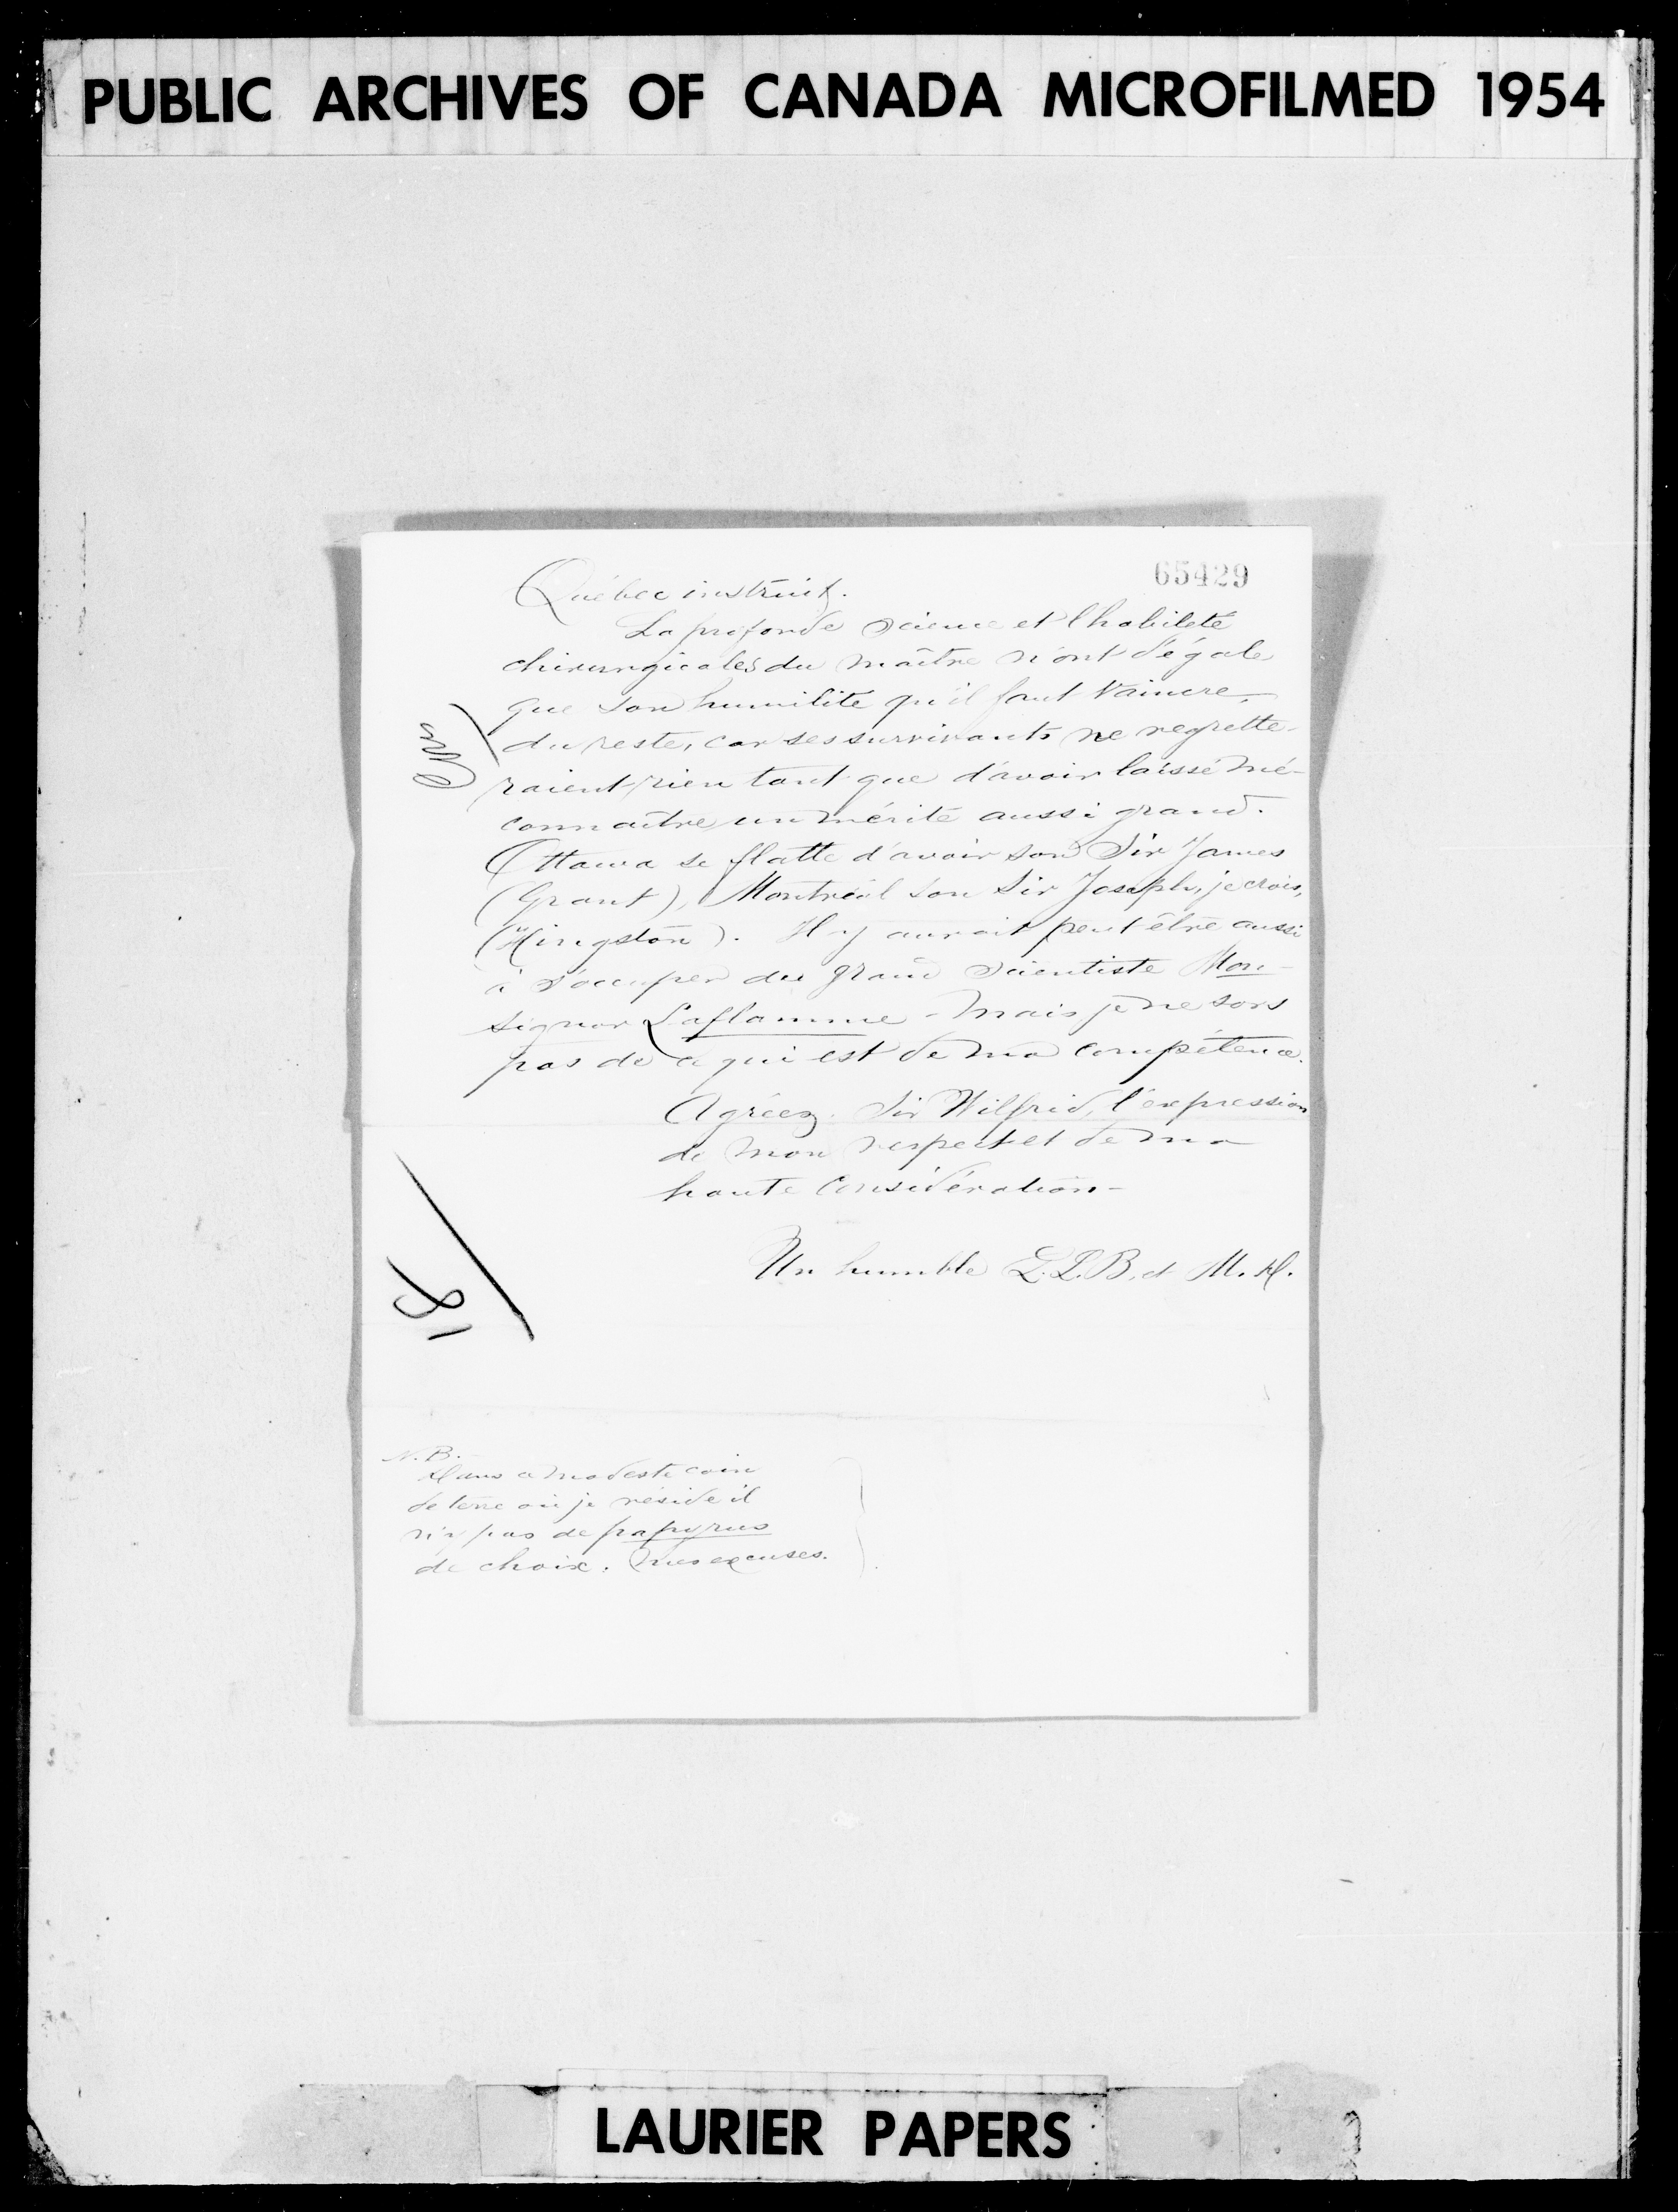 PUBLIC ARCHIVES OF CANADA MICROFILMED 1954
65429
Québec instruit.
La profonde science et l'habileté
chirurgicales du maître n'ont d'égale
que son humilité qu'il faut vaincre,
du reste, car ses survivants ne regrette-
raient rien tant que d'avoir laissé mé-
connaître un mérite aussi grand.
Ottawa se flatte d'avoir son Sir James
(Grant), Montréal son Sir Joseph, je crois,
(Hingston). Il y aurait peut être aussi
à s'occuper du grand scientiste Mon-
signor Laflamme - mais je ne sors
pas de ce qui est de ma compétence.
Agréez, Sir Wilfrid, l'expression
de mon respect et de ma
haute considération -
Un humble L.L.B. et M.D.
18
N.B.
Dans ce modeste coin
de terre où je réside il
n'y a pas de papyrus
de choix. Mes excuses.
LAURIER PAPERS